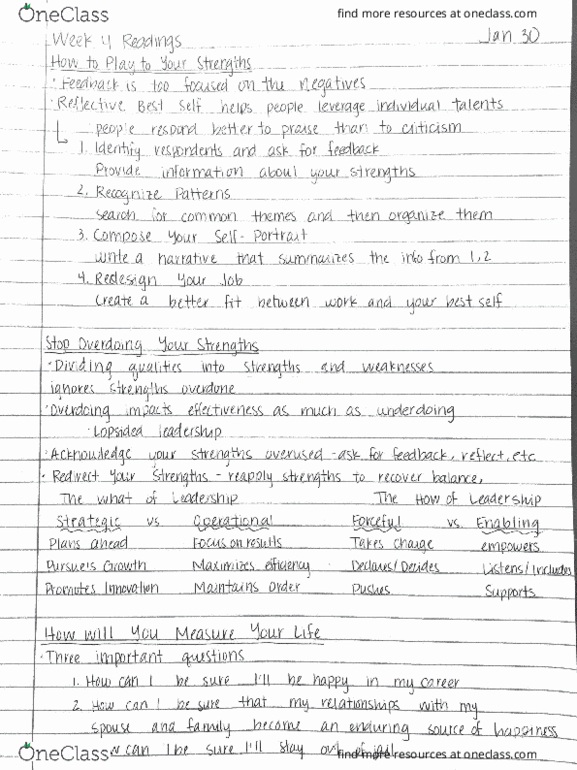 OneClass
find more resources at oneclass.com
Week 4 Readings
Jan. 30
How to Play to Your Strengths
· Feedback is too focused on the negatives
· Reflective Best Self helps people leverage individual talents
people respond better to praise than to criticism
1. Identify respondents and ask for feedback
Provide information about your strengths
2. Recognize Patterns
search for common themes and then organize them
3. Compose Your Self-Portrait
write a narrative that summarizes the info from 1,2
4. Redesign Your Job
Create a better fit between work and your best self
Stop Overdoing Your Strengths
· Dividing qualities into strengths and weaknesses
ignores strengths overdone
· Overdoing impacts effectiveness as much as underdoing
· Lopsided leadership
· Acknowledge your strengths overused - ask for feedback, reflect, etc
· Redirect Your Strengths - reapply strengths to recover balance,
The what of Leadership The How of Leadership
Strategic vs Operational Forceful vs. Enabling
Plans ahead Focus on results Takes Charge empowers
Pursues Growth Maximizes efficiency Declares/Decides Listens/Includes
Promotes Innovation Maintains Order Pushes Supports
How will You Measure Your Life
· Three important questions
1. How can I be sure I'll be happy in my career
2. How can I be sure that my relationships with my
spouse and family become an enduring source of happiness
can I be sure I'll stay
OneClass
find more resources at oneclass.com